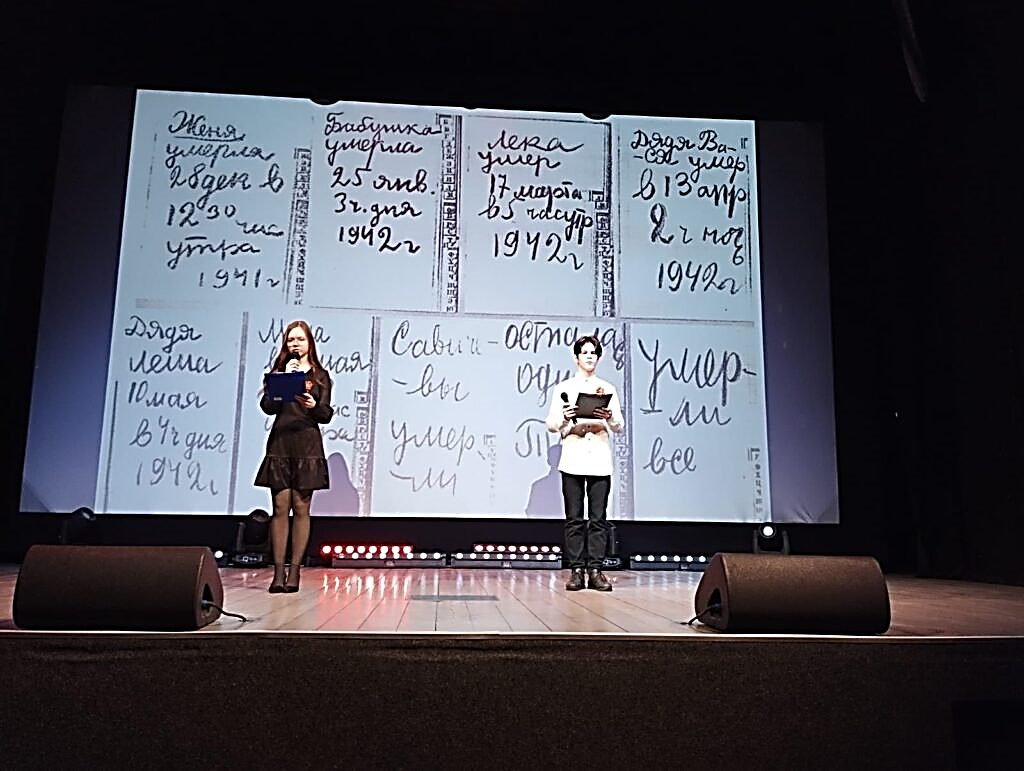 Женя
умерла
28 дек в
12 30 час
утра
1941 г
Бабушка
умерла
25 янв.
3 ч. дня
1942 г
Лека
умер
17 марта
в 5 час утр
1942 г
Дядя Ва-
-ся умер
в 13 апр
2 ч ноч
1942 г
Дядя
Леша
10 мая
в 4 ч дня
1942 г
Савич-
-вы
умер
-ли
Осталас
Умер-
-ли
все